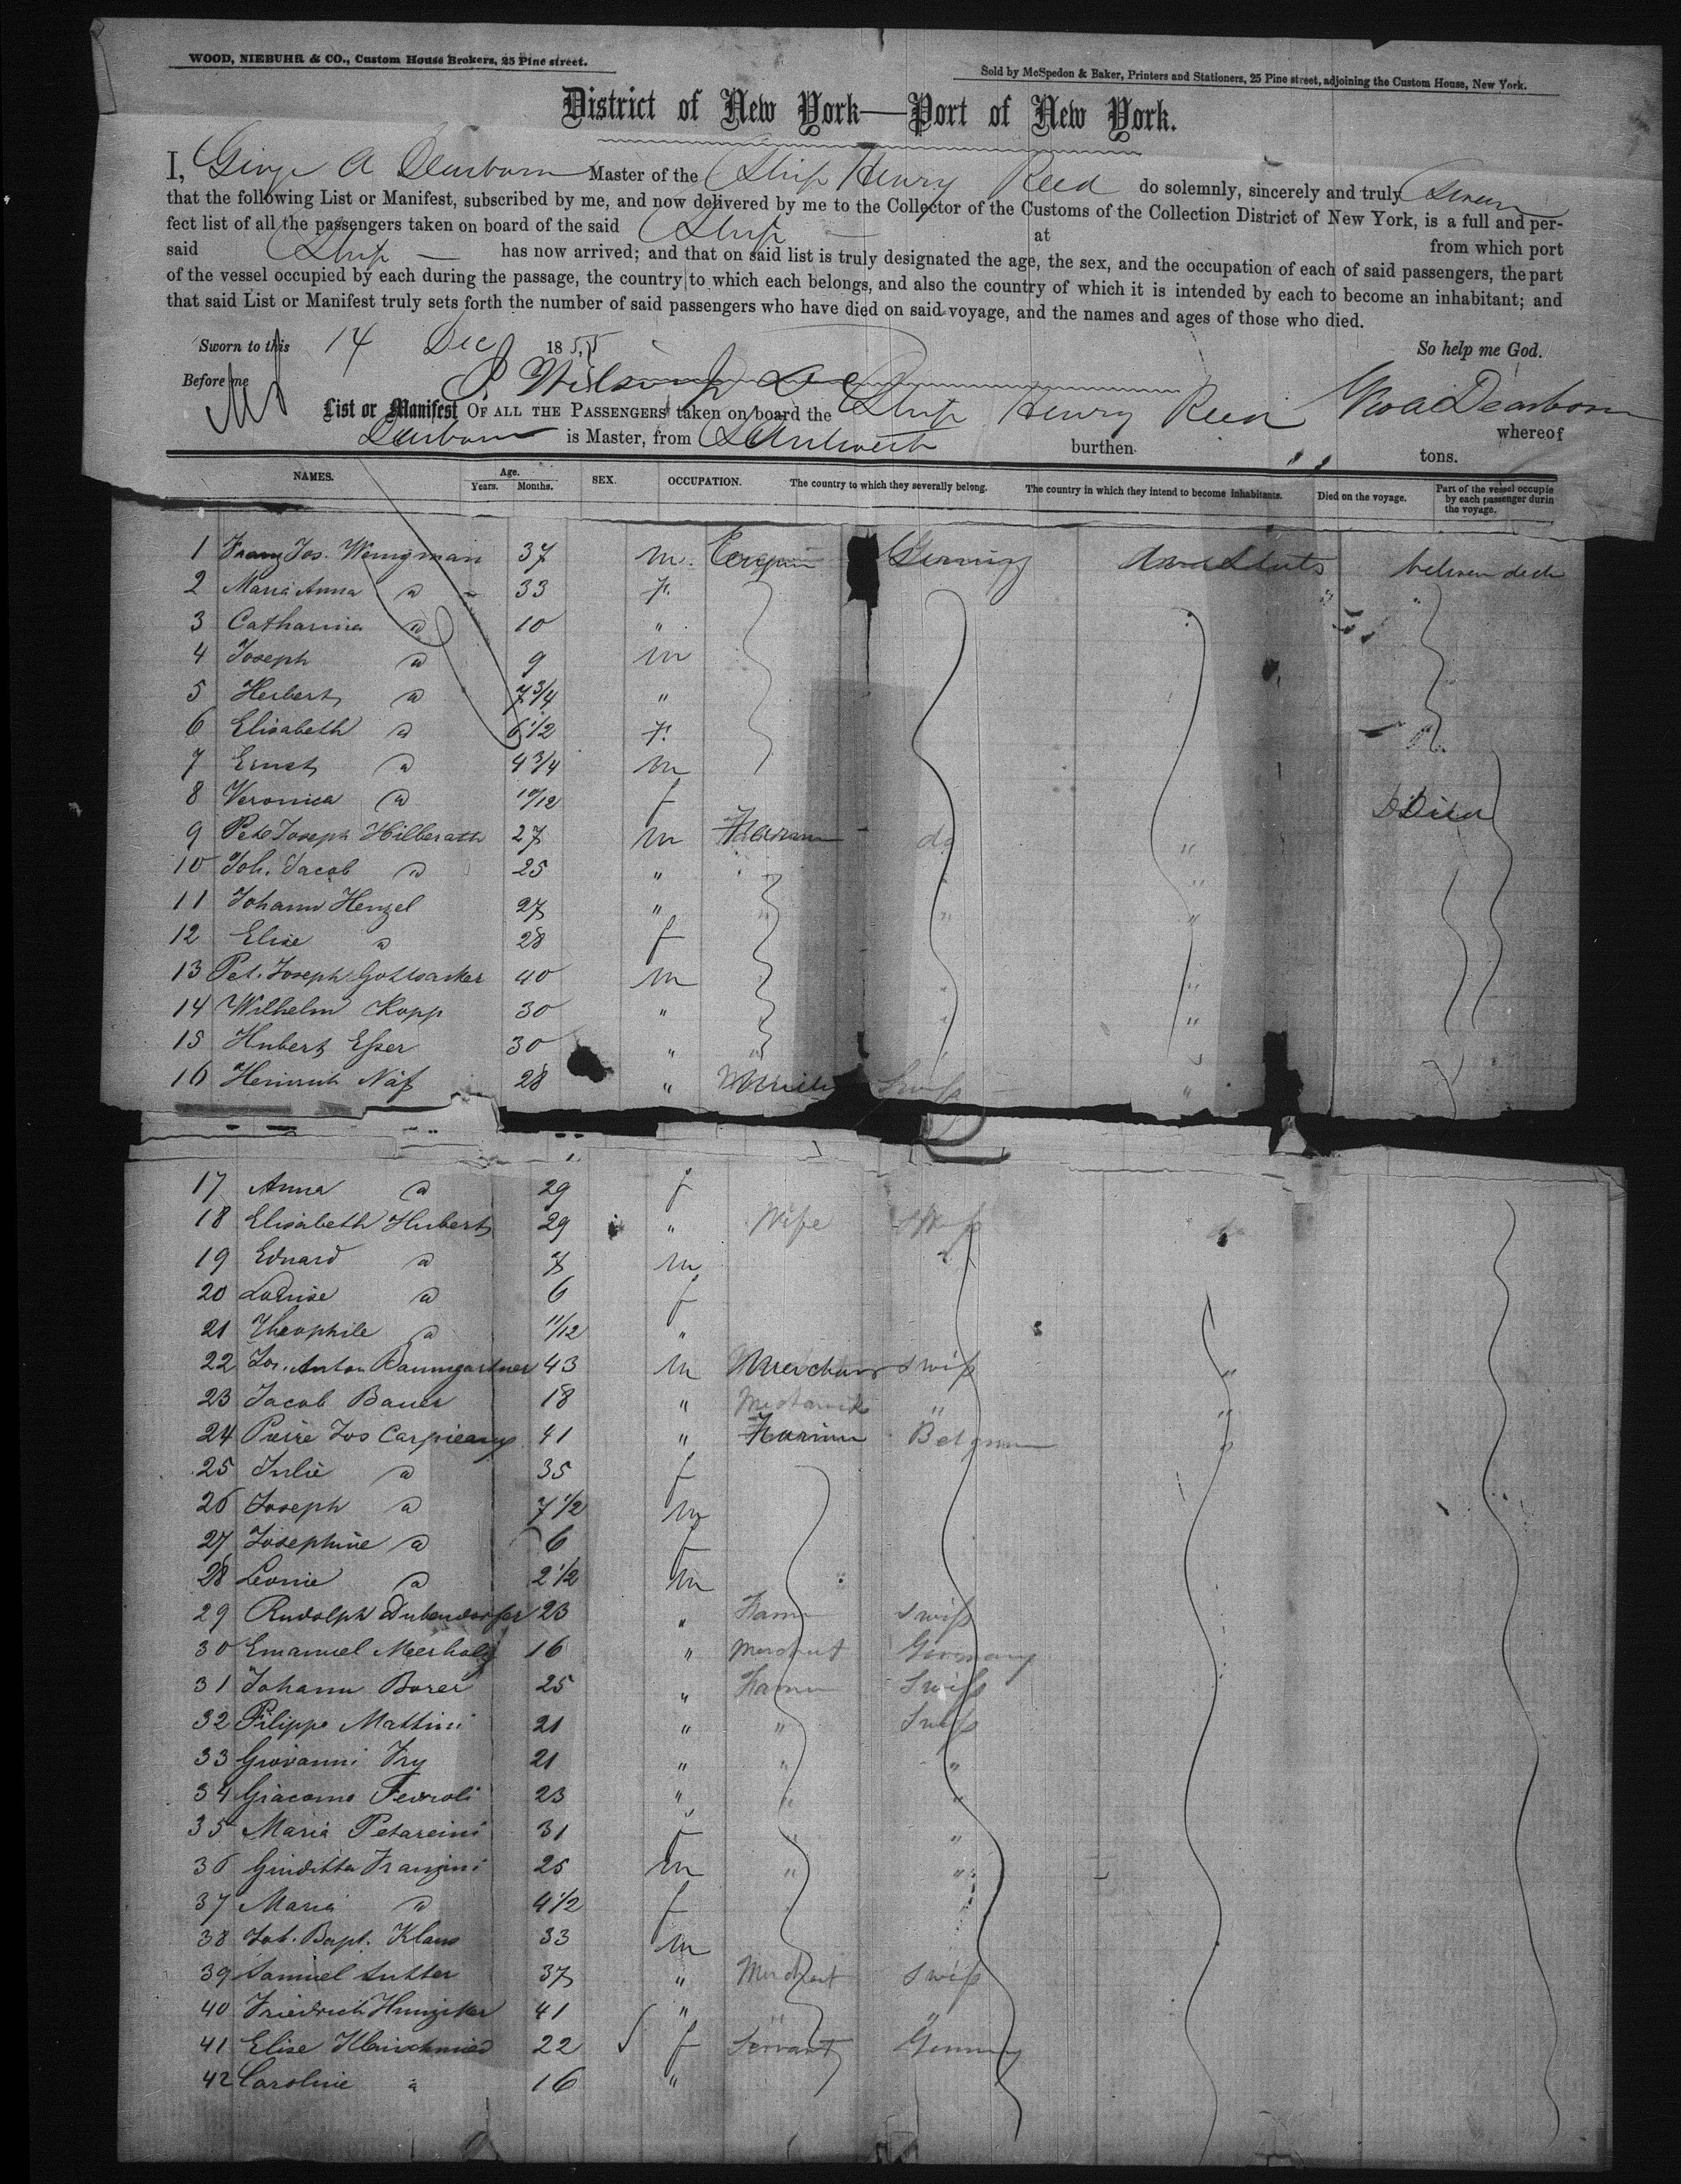 WOOD, NIEBUHR & CO., Custom House Brokers, 25 Pine street.
Sold by McSpedon & Baker, Printers and Stationers, 25 Pine street, adjoining the Custom House, New York.
District of New York—Port of New York.
I, George A Dearborn Master of the Ship Henry Reed do solemnly, sincerely and truly Swear
that the following List or Manifest, subscribed by me, and now delivered by me to the Collector of the Customs of the Collection District of New York, is a full and per-
fect list of all the passengers taken on board of the said Ship at from which port
said Ship has now arrived; and that on said list is truly designated the age, the sex, and the occupation of each of said passengers, the part
of the vessel occupied by each during the passage, the country to which each belongs, and also the country of which it is intended by each to become an inhabitant; and
that said List or Manifest truly sets forth the number of said passengers who have died on said voyage, and the names and ages of those who died.
Sworn to this 14 Dec 1855 So help me God.
Before me Geo A Dearborn
List or Manifest OF ALL THE PASSENGERS taken on board the Ship Henry Reed whereof
Dearborn is Master, from Antwerp burthen tons.
NAMES. Age. Years. Months. SEX. OCCUPATION. The country to which they severally belong. The country in which they intend to become inhabitants. Died on the voyage. Part of the vessel occupie by each passenger durin the voyage.
1 Franz Jos. Wengman 37 m. Germany between deck
2 Maria Anna d 33 f.
3 Catharina d 10 "
4 Joseph d 9 m
5 Herbert d 7 3/4 "
6 Elisabeth d 6 1/2 f.
7 Ernst d 4 3/4 m
8 Veronica d 10/12 f Died
9 Pet Joseph Hilberath 27 m Farmer do "
10 Joh. Jacob d 25 " "
11 Johann Henzel 27 " " " "
12 Elise d 28 f
13 Pet. Joseph Gottsacker 40 m "
14 Wilhelm Kopp 30 " "
15 Hubert Esser 30 " "
16 Heinrich Näf 28 " Swiss "
17 Anna d 29 f
18 Elisabeth Hubert 29 " Wife Swiss do
19 Eduard d 7 m
20 Louise d 6 f
21 Theophile d 11/12 "
22 Jos. Anton Baumgartner 43 m Merchant Swiss "
23 Jacob Bauer 18 " Mechanick " "
24 Pierre Jos Carpieaux 41 " Farmer Belgium "
25 Julie d 35 f
26 Joseph d 7 1/2 m
27 Josephine d 6 f
28 Leonie d 2 1/2 m
29 Rudolph Dubendorfer 23 " Farmer Swiss
30 Emanuel Meerholz 16 " Merchant Germany
31 Johann Borer 25 " Farmer Swiss
32 Filippo Mattini 21 " " Swiss
33 Giovanni Fry 21 " " "
34 Giacomo Pedroli 23 " " "
35 Maria Petareini 31 f " "
36 Giuditta Franzini 25 m " "
37 Maria d 4 1/2 f
38 Joh. Bapt. Klaus 33 m
39 Samuel Sutter 37 " Merchant Swiss
40 Friedrich Hunziker 41 " " "
41 Elise Kleinschmied 22 f Servant Germany
42 Caroline d 16 "